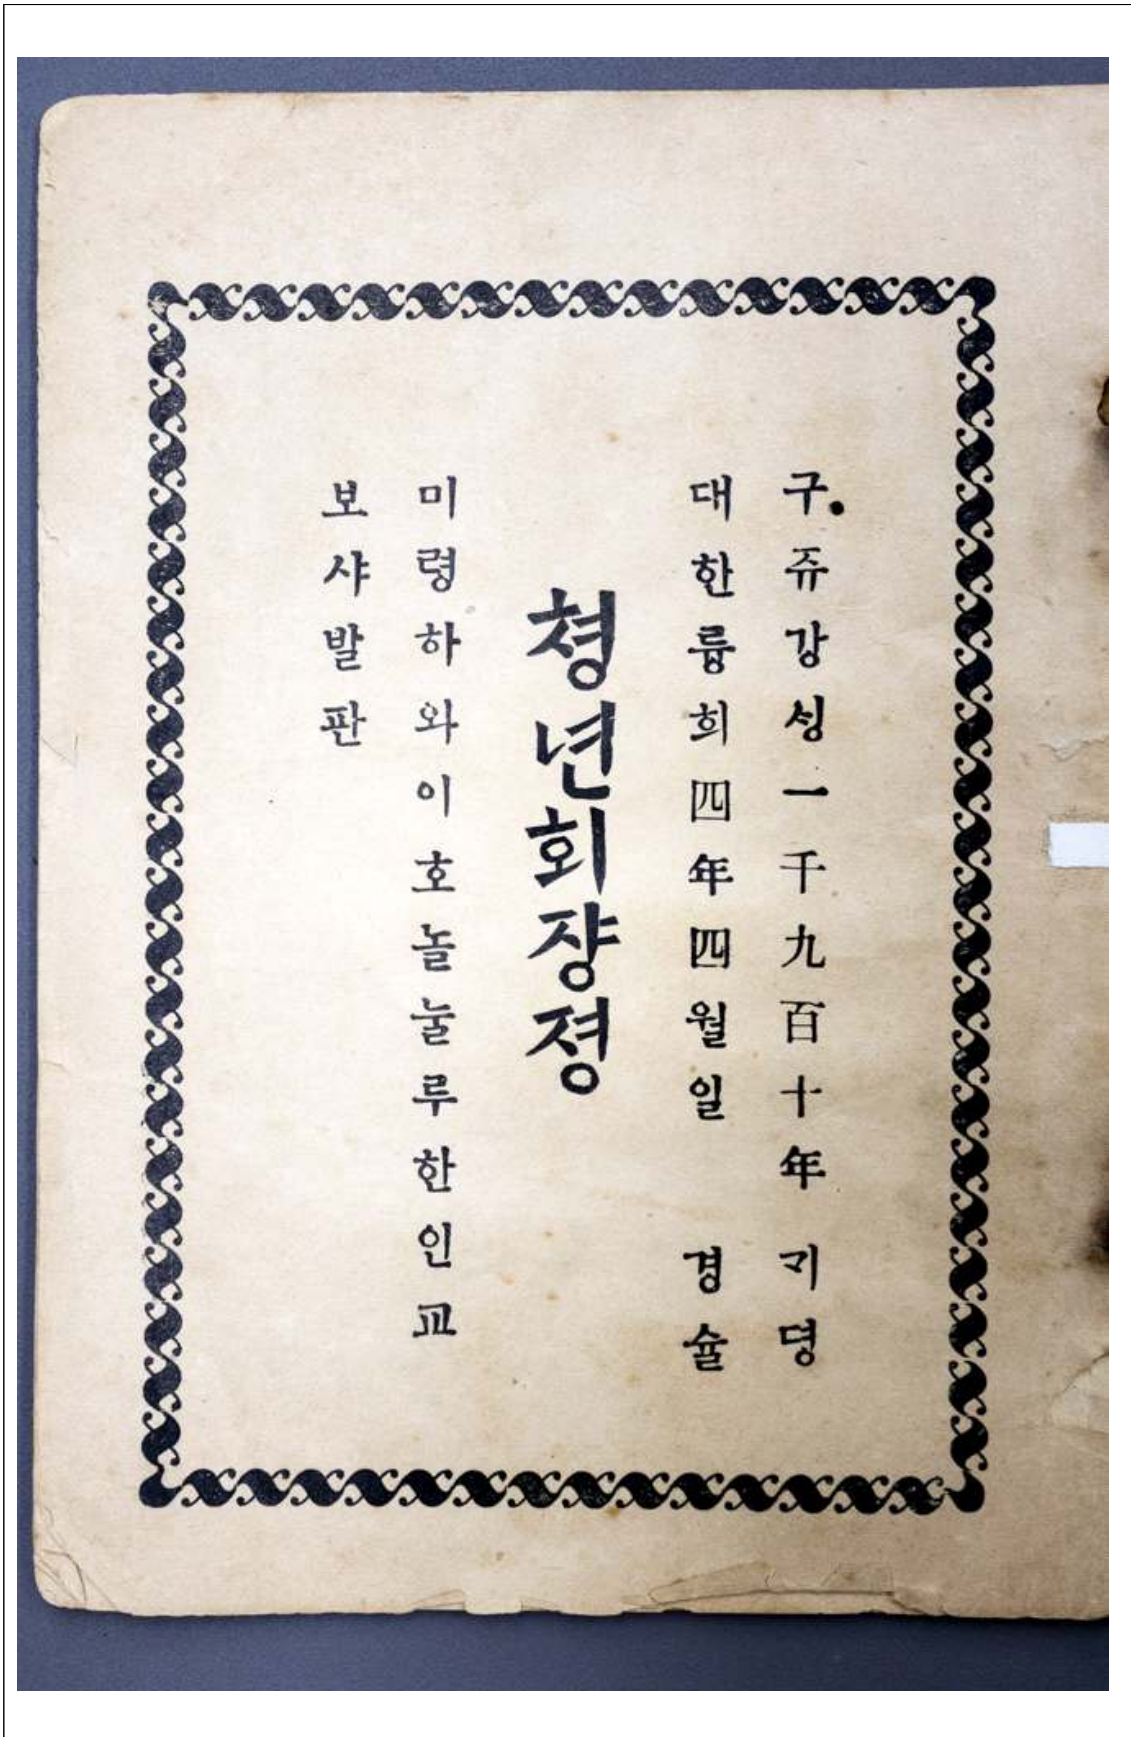 구쥬강성一千九百十年 긔명
대한륭희四年四월일 경슐
청년회쟝졍
미령하와이호놀눌루한인교
보샤발판